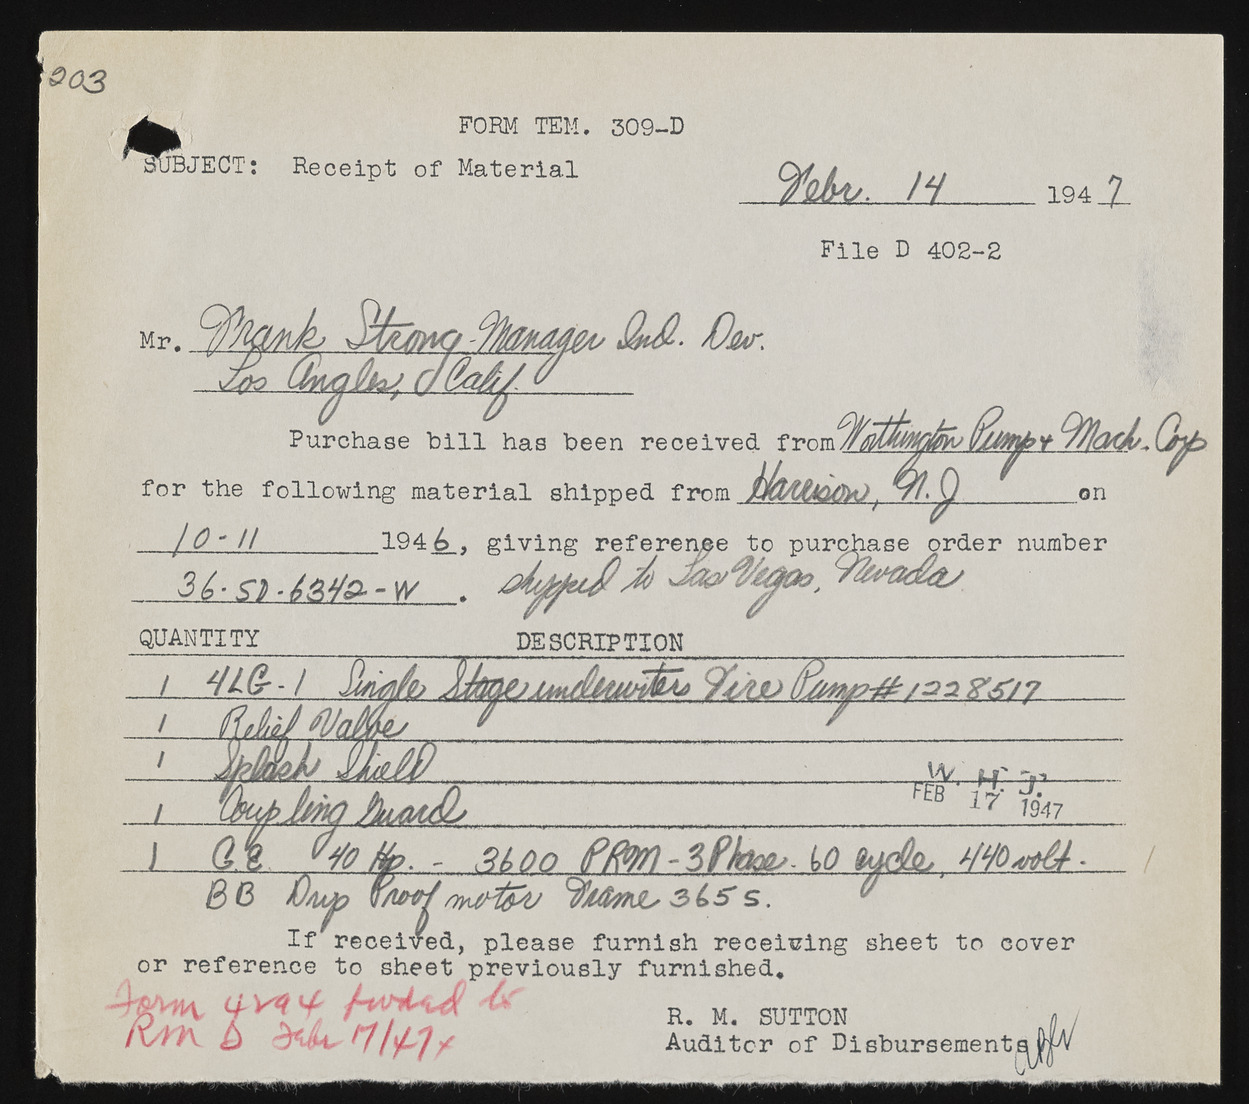 203
FORM TEM. 309-D
SUBJECT: Receipt of Material
Febr. 14 1947
File D 402-2
Mr. Frank Strong-Manager Ind. Dev.
Los Angles, Calif.
Purchase bill has been received from Worthington Pump & Mach. Corp
for the following material shipped from Harrison, N.J on
10-11 1946, giving reference to purchase order number
36-SD-6342-W. shipped to Las Vegas, Nevada
QUANTITY DESCRIPTION
1 4LG-1 Single Stage underwiters Fire Pump # 1228517
1 Relief Valve
1 Splash Shield
W. H. J.
FEB 17 1947
1 Coupling Guard
1 G.E. 40 Hp. - 3600 PROM - 3 Phase - 60 cycle, 440 volt.
BB Drip Proof motor Frame 365 S.
If received, please furnish receiving sheet to cover
or reference to sheet previously furnished.
Form 4294 to
RM D Febr 17/47
R. M. SUTTON
Auditor of Disbursements